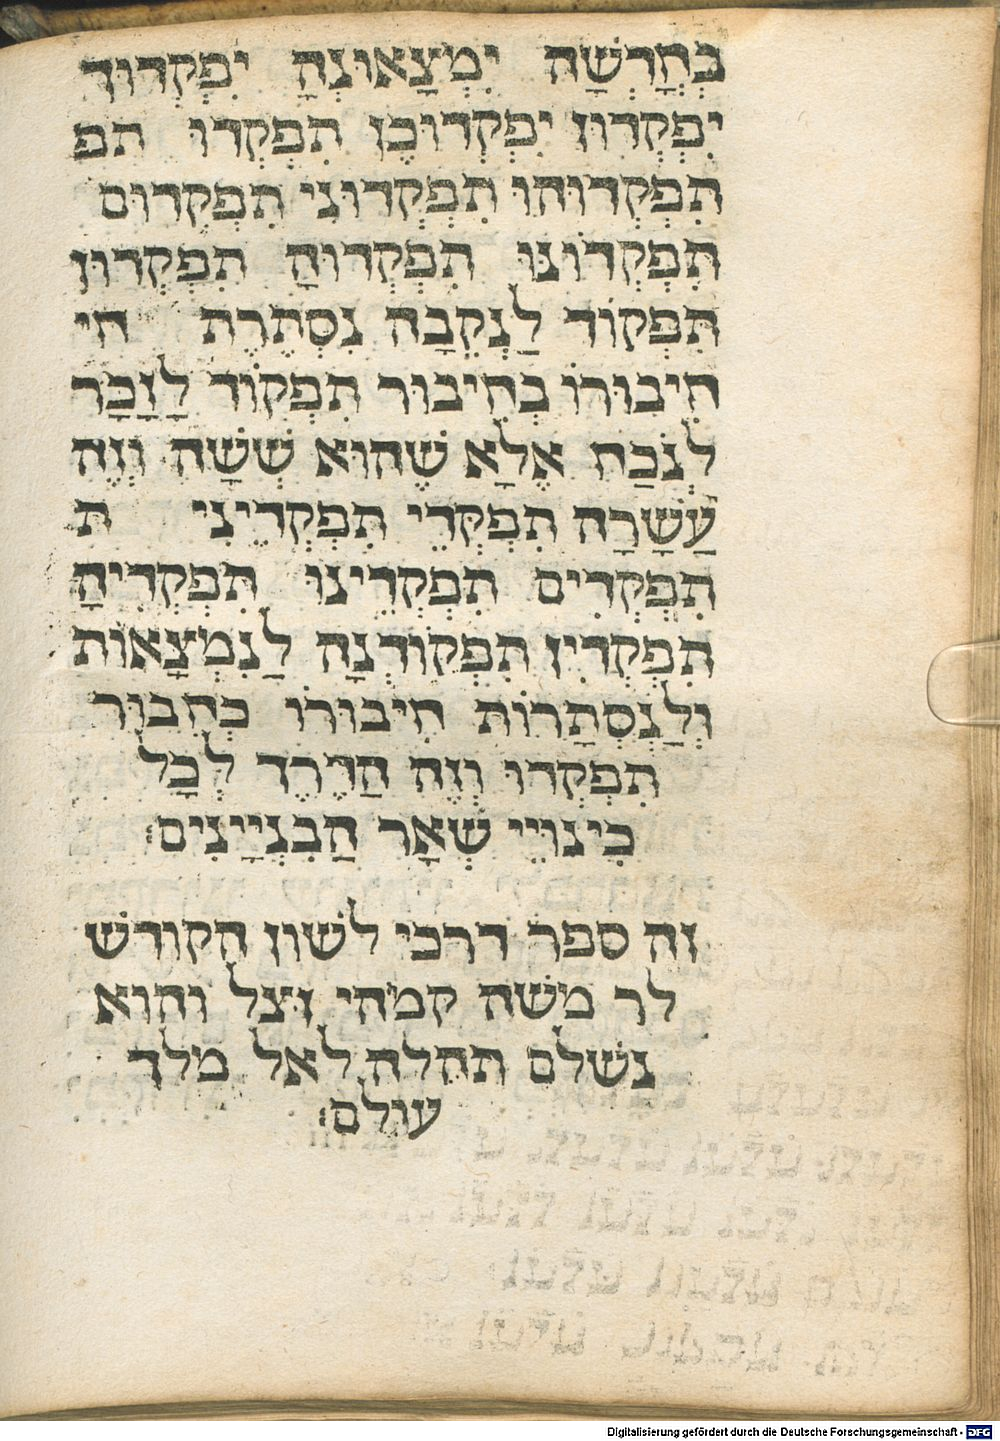 בְּחָרְשָׁה יִמְצָאוּנְהָ יִפְקְדוּךָ
יִפְקְדוּן יִפְקְדוּכֶן תִּפְקְדוּ תפ
תִּפְקְדוּהוּ תִּפְקְדוּנִי תִּפְקְדוּם
תִּפְקְדוּנוּ תִּפְקְדוּהָ תִּפְקְדוּן
תִּפְקוֹד לַנְּקֵבָה נִסְתֶּרֶת חי
חִיבּוּרוֹ בְּחִיבּוּר תִּפְקוֹד לַזָּכָר
לְנֹכַח אֶלָּא שֶׁהוּא שִׁשָּׁה וְזֶה
עֲשָׂרָה תִּפְקְדִי תִּפְקְדִינִי ת
תִּפְקְדִים תִּפְקְדִינוּ תִּפְקְדִיהָ
תִּפְקְדִין תִּפְקוֹדְנָה לַנִּמְצָאוֹת
וְלַנִּסְתָּרוֹת חִיבּוּרוֹ כְּחִבּוּר
תִּפְקְדוּ וְזֶה הַדֶּרֶךְ לְכָל
כִּינּוּיֵי שְׁאָר הַבִּנְיָינִים׃
זה ספר דרכי לשון הקודש
לר משה קמחי זצל והוא
נשלם תהלה לאל מלך
עולם׃
Digitalisierung gefördert durch die Deutsche Forschungsgemeinschaft - DFG